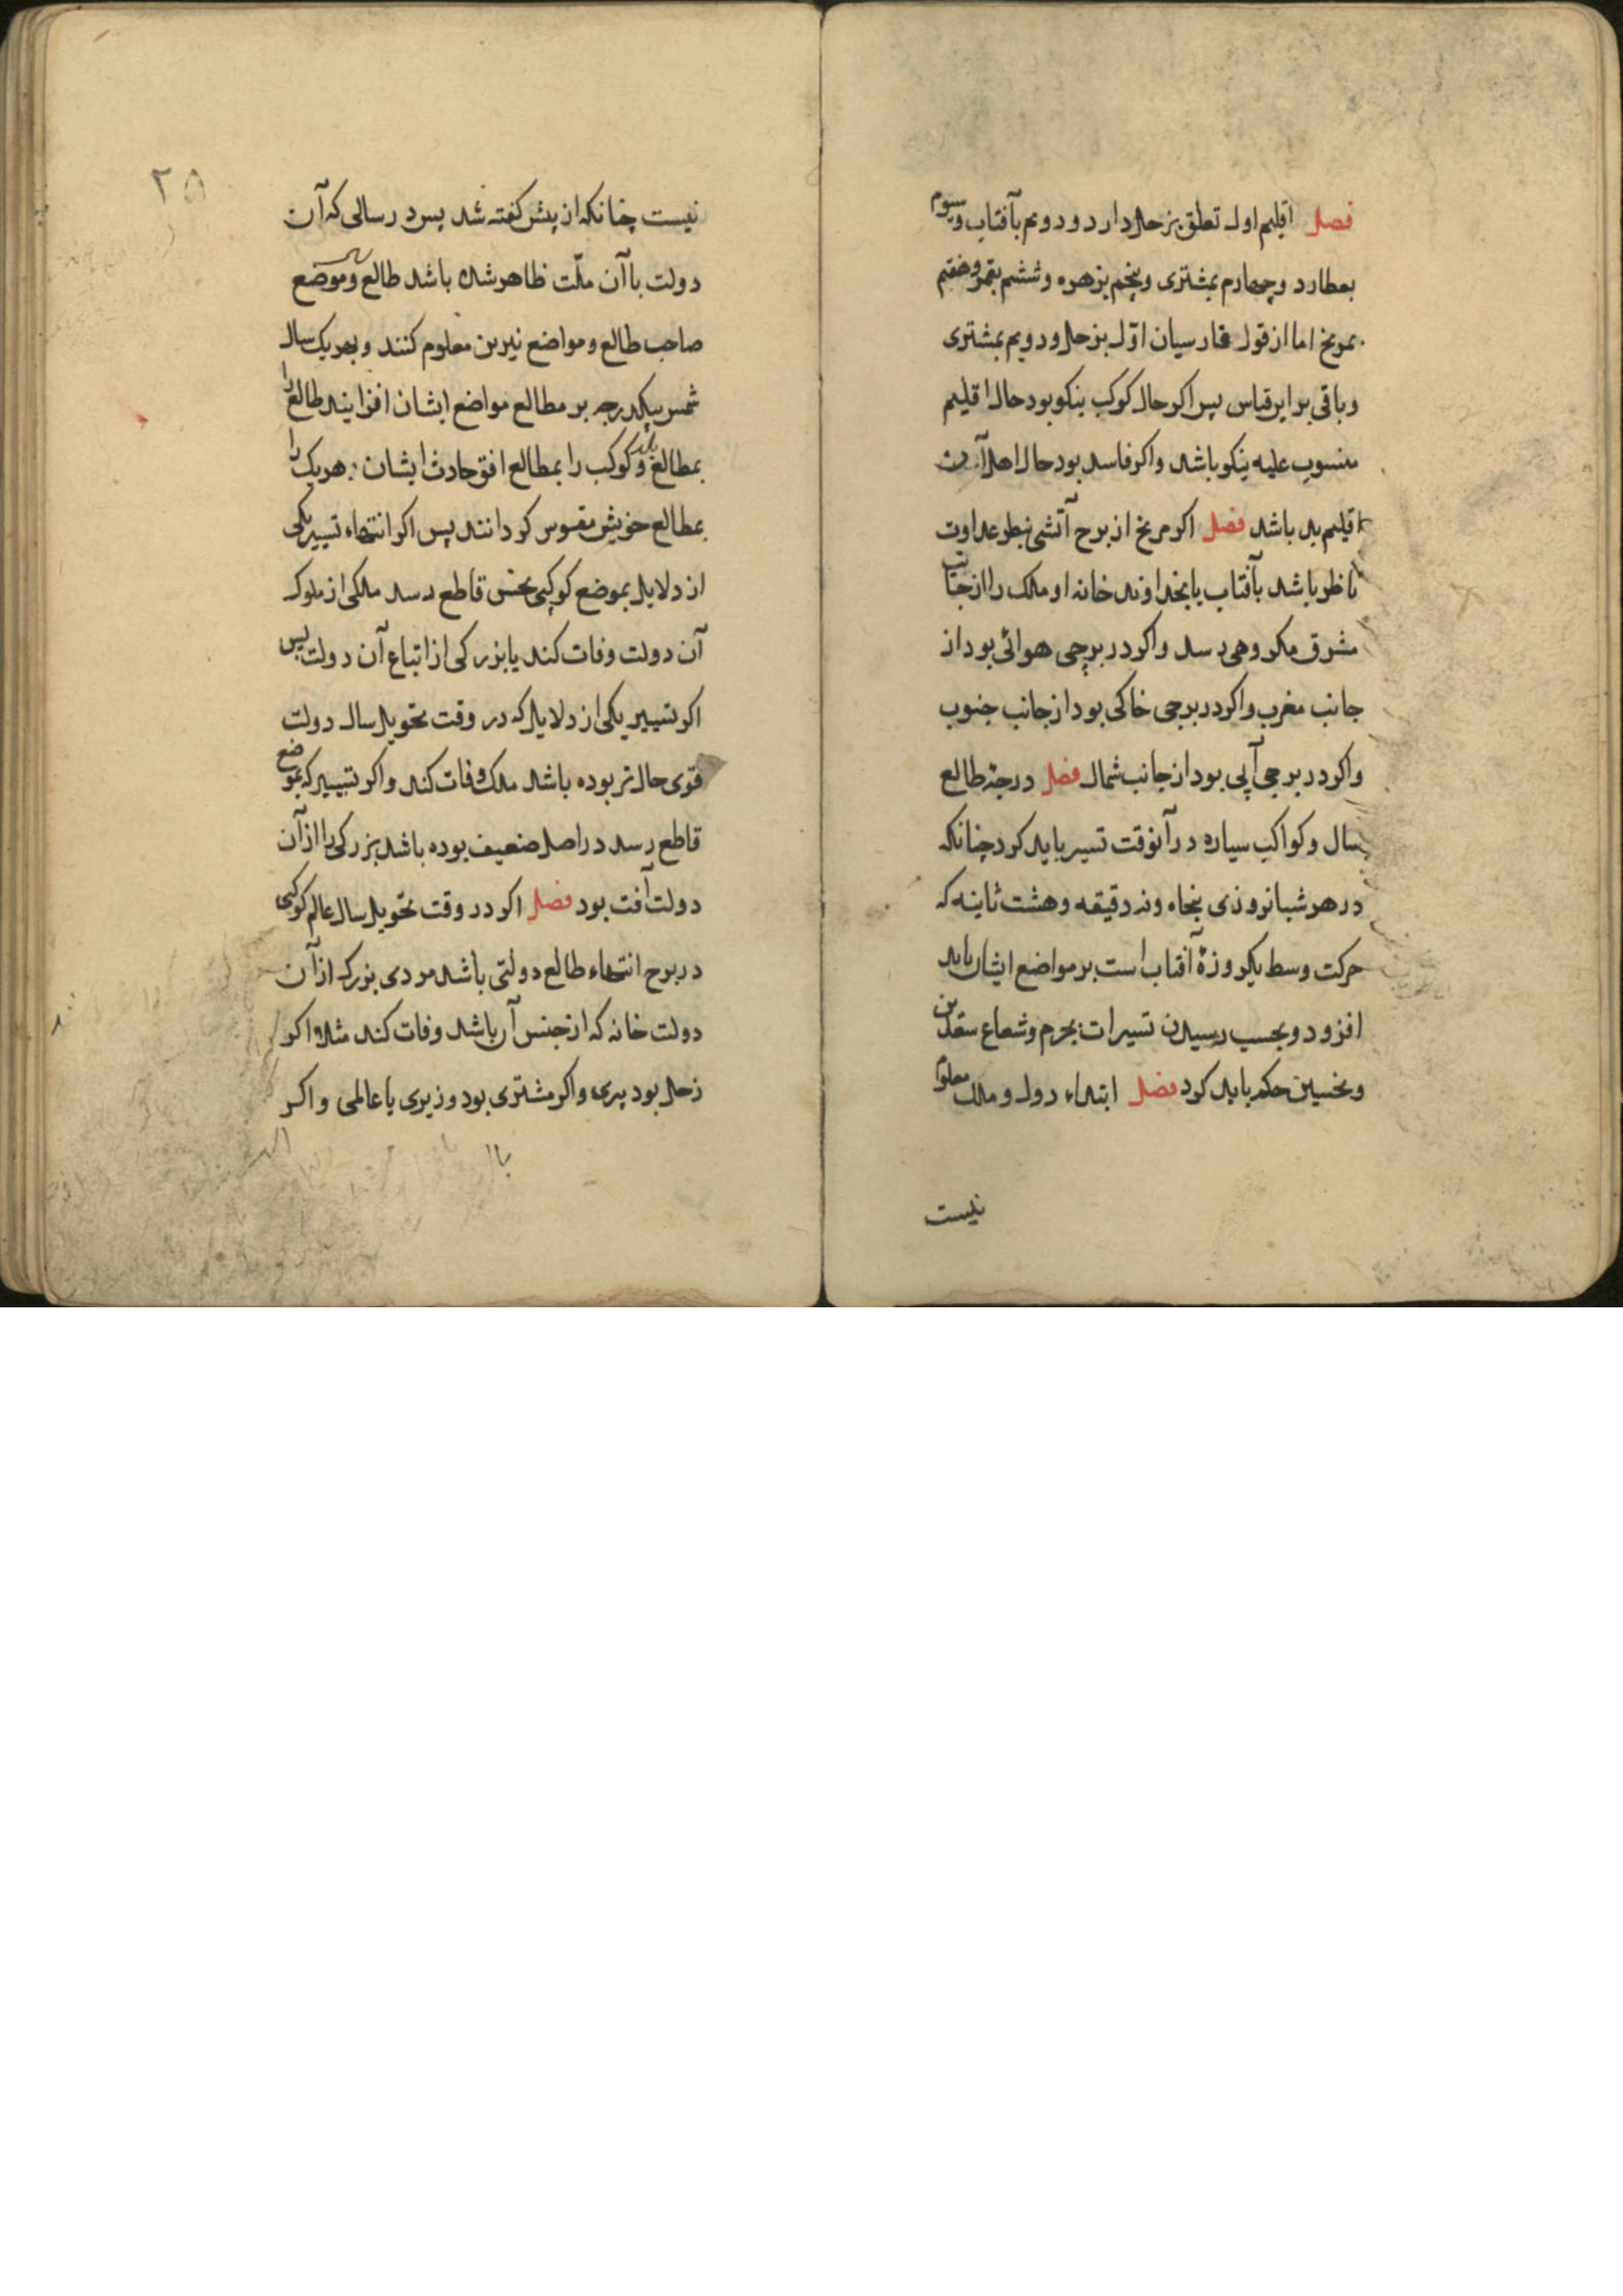 فصل اقلیم اول تعلق بزحل دارد و دویم بآفتاب و سیوم
بعطارد و چهارم بمشتری و پنجم بزهره و ششم بقمر و هفتم
بمریخ اما از قول فارسیان اوّل بزحل و دویم بمشتری
و باقی برین قیاس پس اکر حال کوکب نیکو بود حال اقلیم
منسوب علیه نیکو باشد و اکر فاسد بود حال اهل آن
اقلیم بد باشد فصل اکر مریخ از برج آتشی بنظر عداوت
ناظر باشد بآفتاب یا بخداوند خانه او ملک را از جانب
مشرق مکروهی رسد و اکر در برجی هوائی بود از
جانب مغرب و اکر در برجی خاکی بود از جانب جنوب
و اکر در برجی آبی بود از جانب شمال فصل درجهٔ طالع
سال و کواکب سیاره در آنوقت تسییر باید کرد چنانکه
در هر شبانروزی پنجاه و نه دقیقه و هشت ثانیه که
حرکت وسط یکروزهٔ آفتاب است بر مواضع ایشان باید
افزود و بحسب رسیدن تسییرات بجرم و شعاع سعدین
و نحسین حکم باید کرد فصل ابتداء دول و ملل معلوم
نیست
۲۵
نیست چنانکه از پیش کفته شد پس در سالی که آن
دولت با آن ملّت ظاهر شده باشد طالع و موضع
صاحب طالع و مواضع نیرین معلوم کنند و بهر یک سال
شمسی یکدرجه بر مطالع مواضع ایشان افزایند طالع را
بمطالع بلد و کوکب را بمطالع افق حادث ایشان هر یک را
بمطالع خویش مقوس کردانند پس اکر انتهاء تسییر یکی
از دلایل بموضع کوکبی نحس قاطع رسد ملکی از ملوک
آن دولت وفات کند یا بزرکی از اتباع آن دولت پس
اکر تسییر یکی از دلایل که در وقت تحویل سال دولت
قوی حال تر بوده باشد ملک وفات کند و اکر تسییر که بموضع
قاطع رسد در اصل ضعیف بوده باشد بزرکی را از آن
دولت آفت بود فصل اکر در وقت تحویل سال عالم کوکبی
در برج انتهاء طالع دولتی باشد مردی بزرک از آن
دولت خانه که از جنس آن باشد وفات کند مثلا اکر
زحل بود پیری و اکر مشتری بود وزیری یا عالمی و اکر